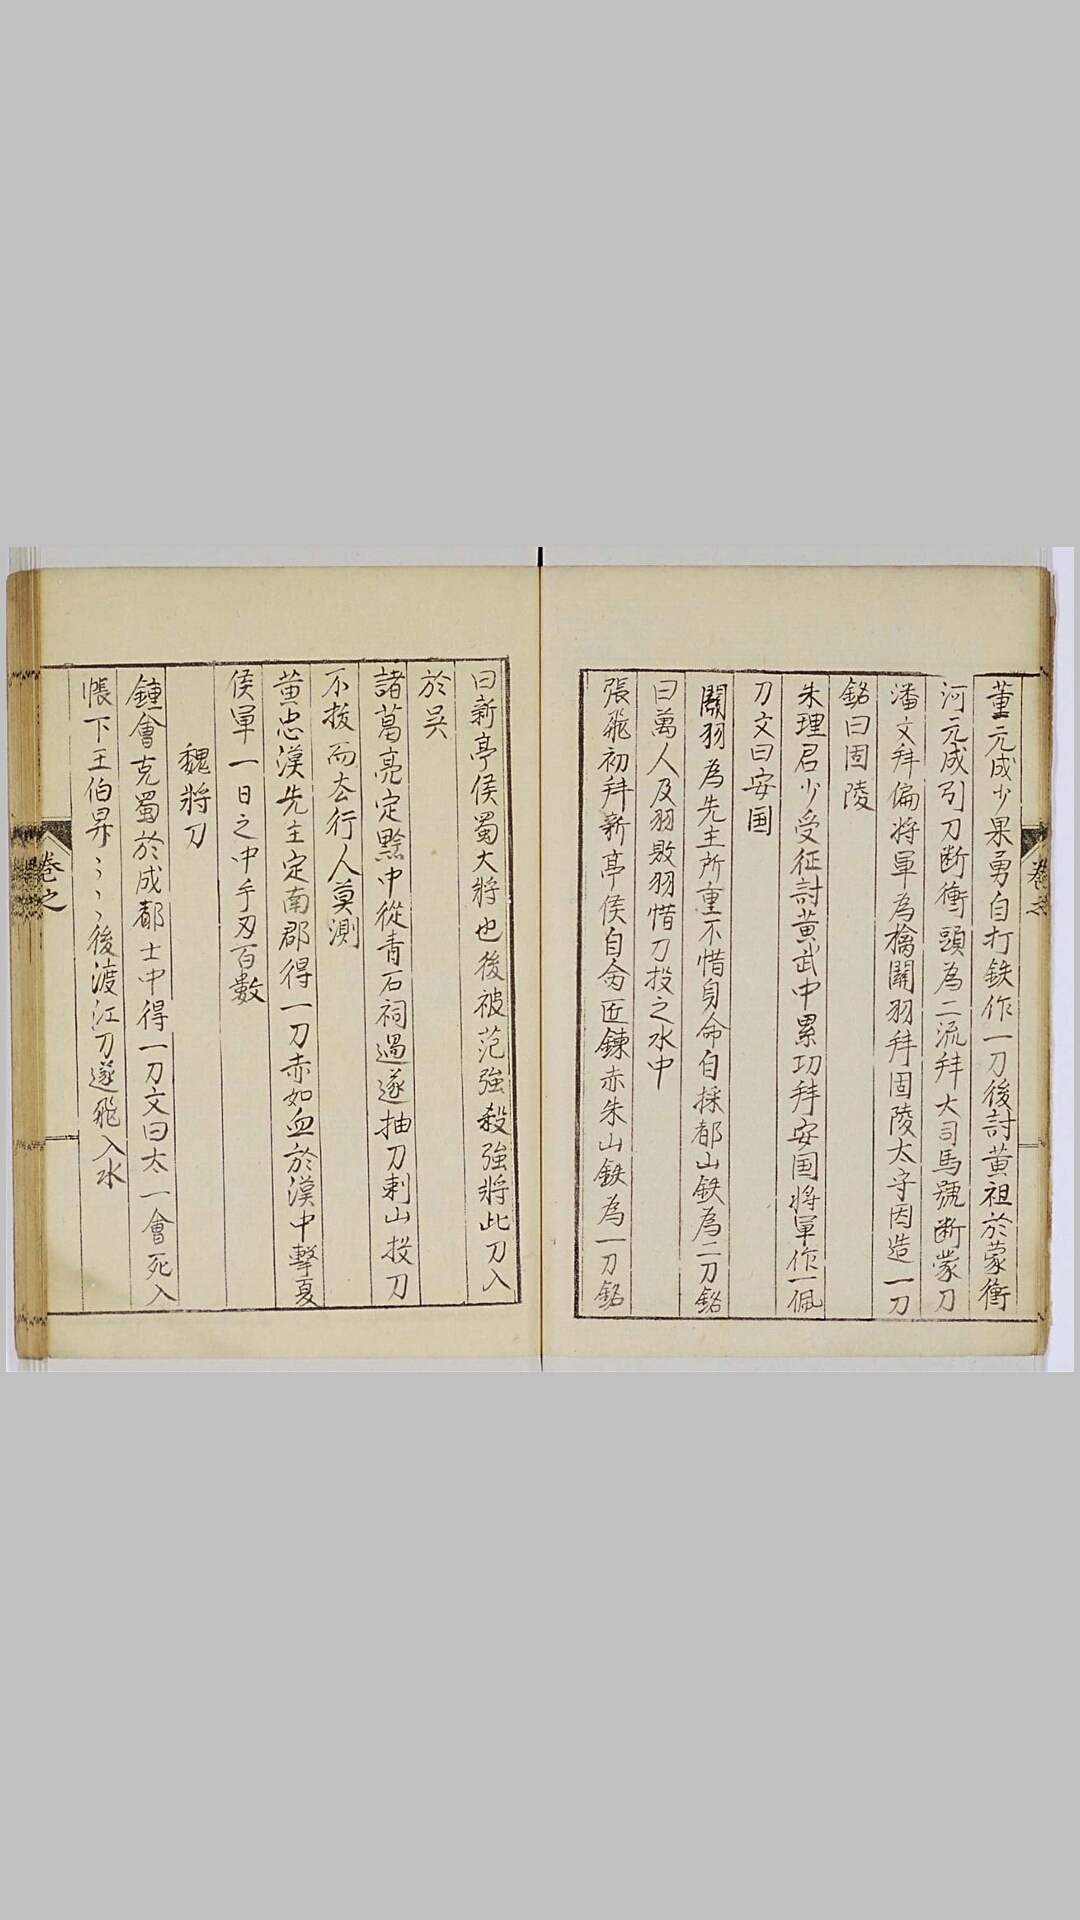 董元成少果勇自打鉄作一刀後討黄祖於蒙衝
河元成引刀断衝頭為二流拜大司馬號断蒙刀
潘文拜偏将軍為擒關羽拜固陵太守因造一刀
銘曰固陵
朱理君少受征討黄武中累功拜安国将軍作一佩
刀文曰安国
關羽為先主所重不惜身命自採都山鉄為二刀銘
曰萬人及羽敗羽惜刀投之水中
張飛初拜新亭侯自命匠鍊赤朱山鉄為一刀銘
曰新亭侯蜀大將也後被范強殺強將此刀入
於吴
諸葛亮定黔中從青石祠過遂抽刀刺山投刀
不拔而去行人莫測
黄忠漢先主定南郡得一刀赤如血於漢中擊夏
侯軍一日之中手刃百數
魏將刀
鍾會克蜀於成都土中得一刀文曰太一會死入
帳下王伯昇〻〻後渡江刀遂飛入水
卷之